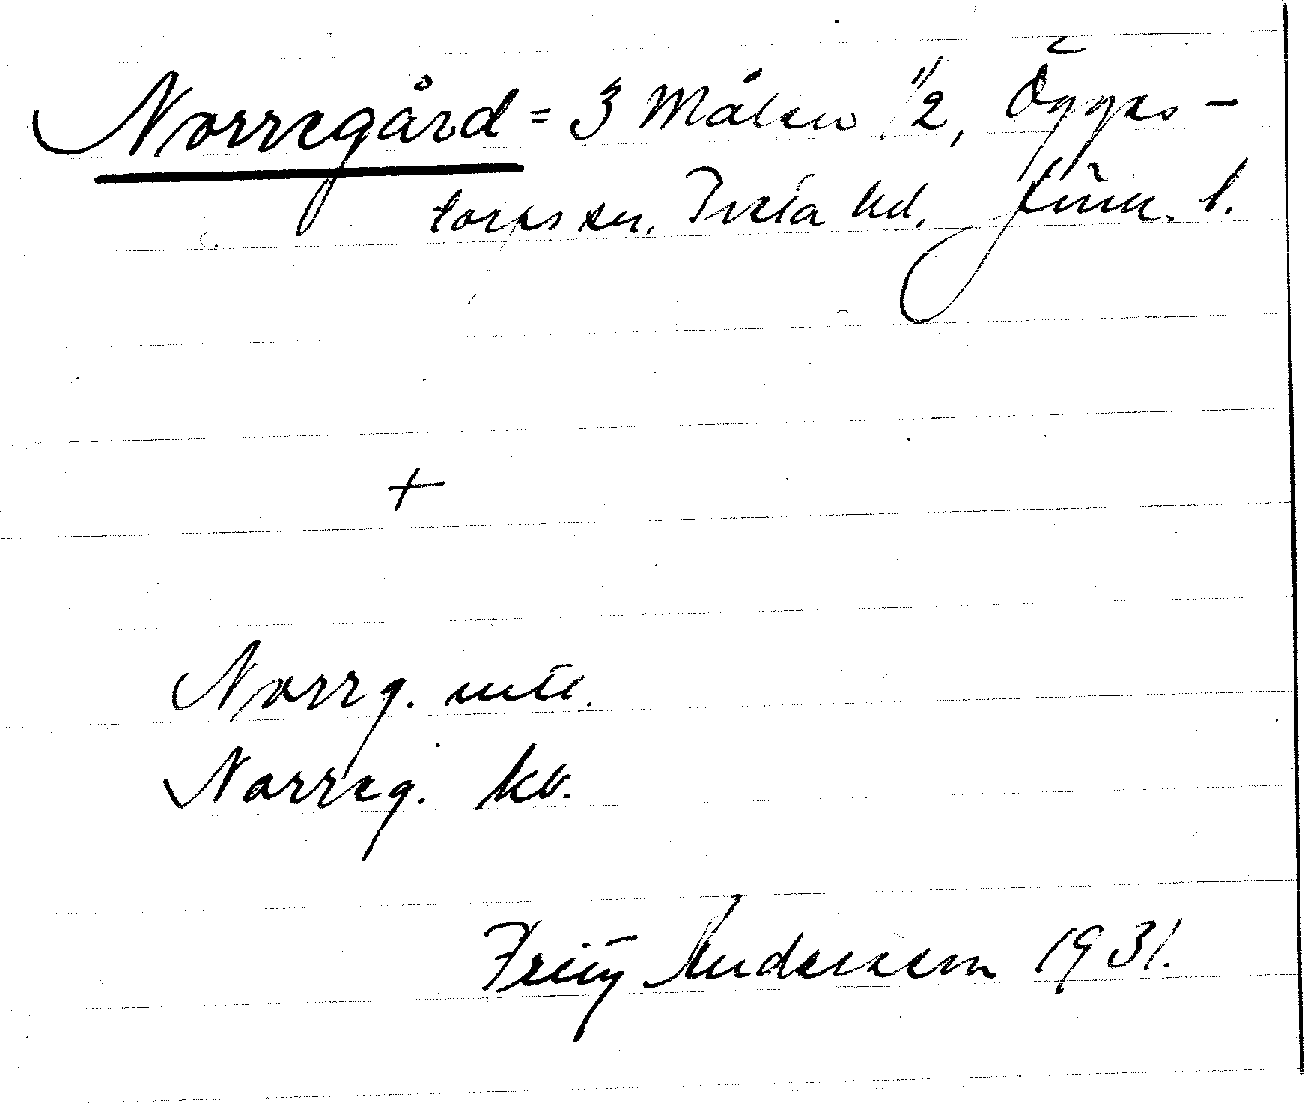 Norregård = 3 Målen 1/2, Ögges-
torps sn. Tveta hd. Jönk. l.
+
Norrg. utt.
Norreg. kb.
Fritz Anderson 1931.